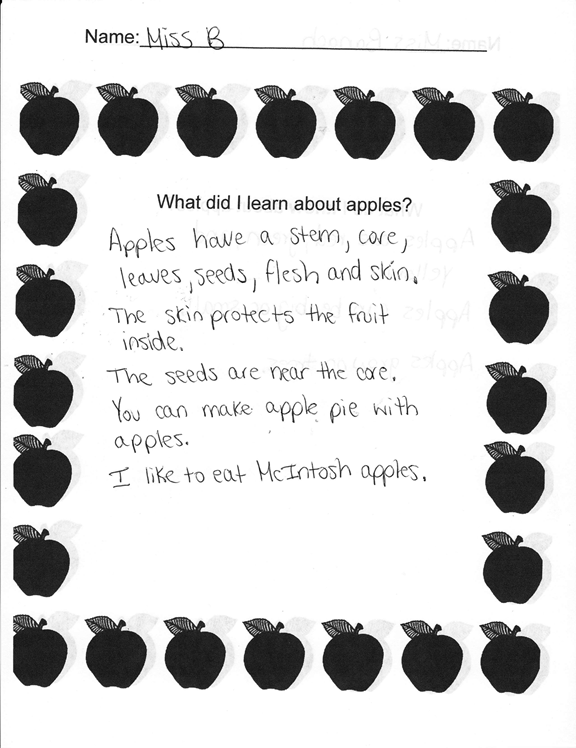 Name: Miss B
What did I learn about apples?
Apples have a stem, core,
leaves, seeds, flesh and skin.
The skin protects the fruit
inside.
The seeds are near the core.
You can make apple pie with
apples.
I like to eat McIntosh apples.